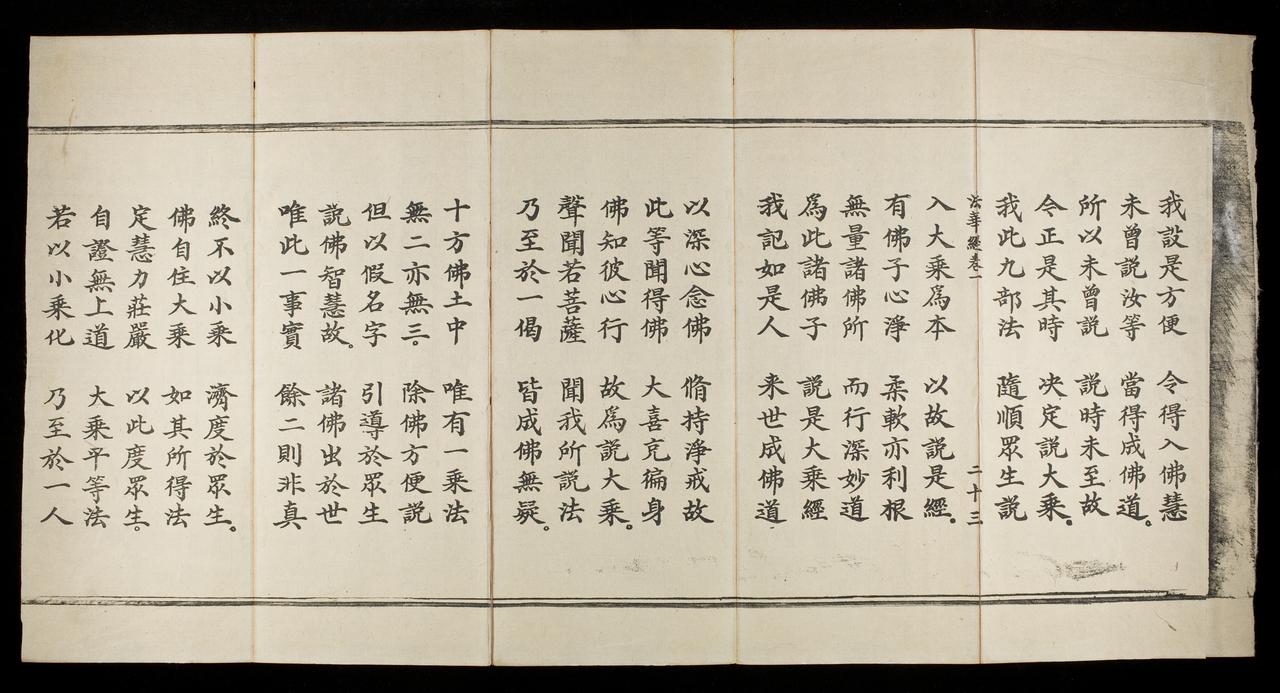 我設是方便 令得入佛慧
未曾說汝等 當得成佛道。
所以未曾說 說時未至故
今正是其時 决定說大乘。
我此九部法 隨順眾生說
法華經卷一 二十三
入大乘爲本 以故說是經。
有佛子心淨 柔軟亦利根
無量諸佛所 而行深妙道
爲此諸佛子 說是大乘經
我記如是人 来世成佛道
以深心念佛 脩持淨戒故
此等聞得佛 大喜充徧身
佛知彼心行 故爲說大乘。
聲聞若菩薩 聞我所說法
乃至於一偈 皆成佛無疑。
十方佛土中 唯有一乘法
無二亦無三。 除佛方便說
但以假名字 引導於眾生
說佛智慧故。 諸佛出於世
唯此一事實 餘二則非真
終不以小乘 濟度於眾生。
佛自住大乘 如其所得法
定慧力莊嚴 以此度眾生。
自證無上道 大乘平等法
若以小乘化 乃至於一人